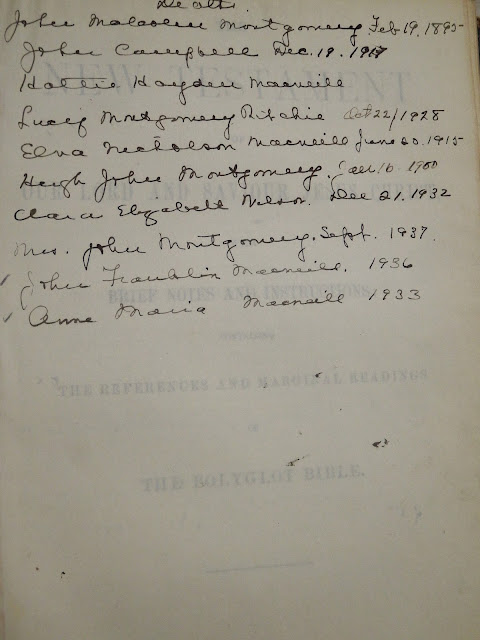 Deaths.
John Malcolm Montgomery Feb 19, 1895
John Campbell Dec. 19. 1917
Hattie Hayden Macneill
Lucy Montgomery Ritchie Oct 22/1928
Elva Nicholson Macneill June 1915
Hugh John Montgomery. Jan 16. 1900
Clara Elizabeth Wilson. Dec 21. 1932
Mrs. John Montgomery. Sept. 1937.
John Franklin Macneill. 1936
Anne Maria Macneill 1933
NEW TESTAMENT
OF
OUR LORD AND SAVIOUR JESUS CHRIST
BRIEF NOTES AND INSTRUCTIONS
CONTAINING
THE REFERENCES AND MARGINAL READINGS
OF
THE POLYGLOT BIBLE.